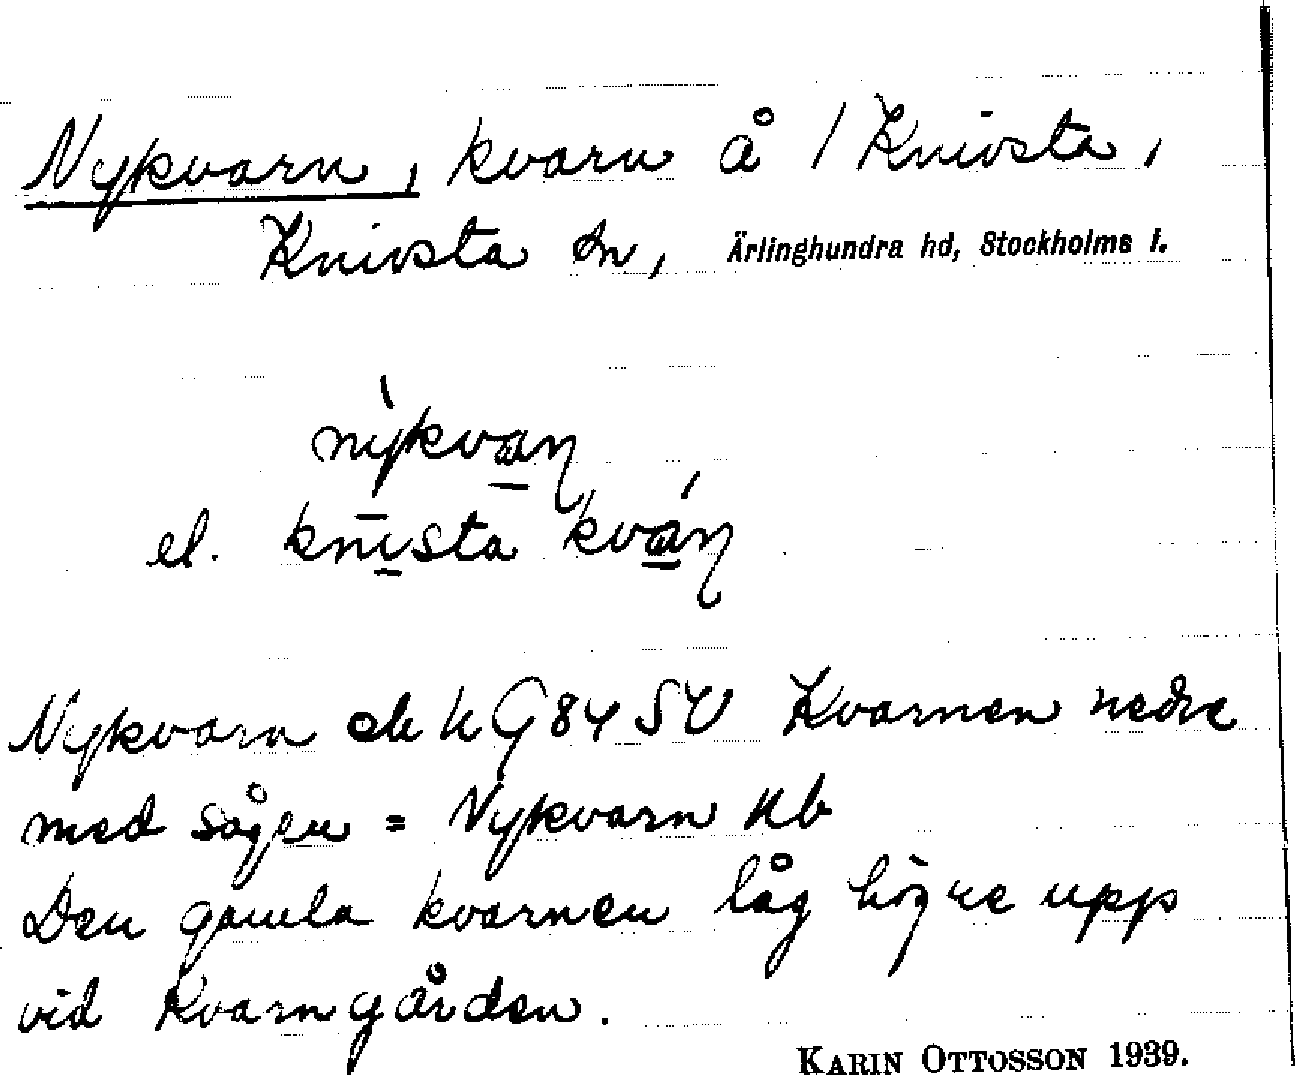 Nykvarn, kvarn å 1 Knivsta,
Knivsta sn, Ärlinghundra hd, Stockholms l.
nỳkvaɳ
el. knīsta kváɳ
Nykvarn ek kG 84 SV Kvarnen nedre
med sågen = Nykvarn Kb
Den gamla kvarnen låg högre upp
vid Kvarngården.
KARIN OTTOSSON 1939.